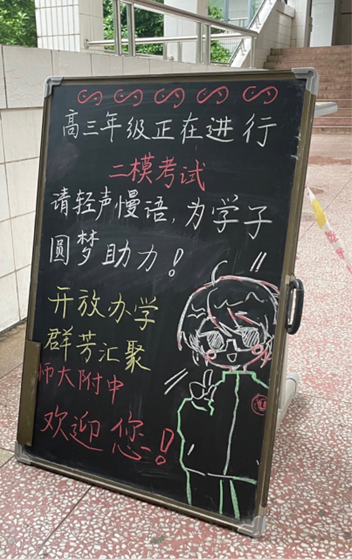 高三年级正在进行
二模考试
请轻声慢语,为学子
圆梦助力!
开放办学
群芳汇聚
师大附中
欢迎您!